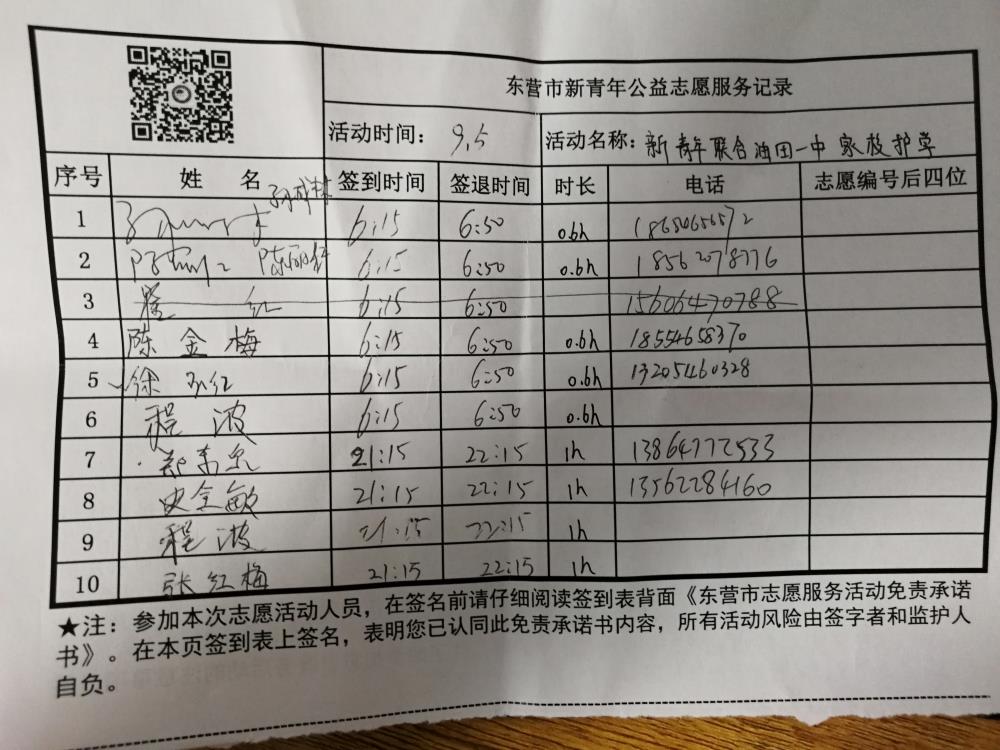 东营市新青年公益志愿服务记录
活动时间： 9.5 活动名称：新青年联合油田一中家校护学
序号 姓 名 签到时间 签退时间 时长 电话 志愿编号后四位
1 6:15 6:50 0.6h
2 陈丽红 6:15 6:50 0.6h 18562078776
3 红 6:15 6:50 15606470788
4 陈金梅 6:15 6:50 0.6h 18554658370
5 徐玉红 6:15 6:50 0.6h 13205460328
6 程波 6:15 6:50 0.6h
7 21:15 22:15 1h 13864772533
8 史金敏 21:15 22:15 1h 13562284160
9 程波 21:15 22:15 1h
10 张红梅 21:15 22:15 1h
★注：参加本次志愿活动人员，在签名前请仔细阅读签到表背面《东营市志愿服务活动免责承诺
书》。在本页签到表上签名，表明您已认同此免责承诺书内容，所有活动风险由签字者和监护人
自负。